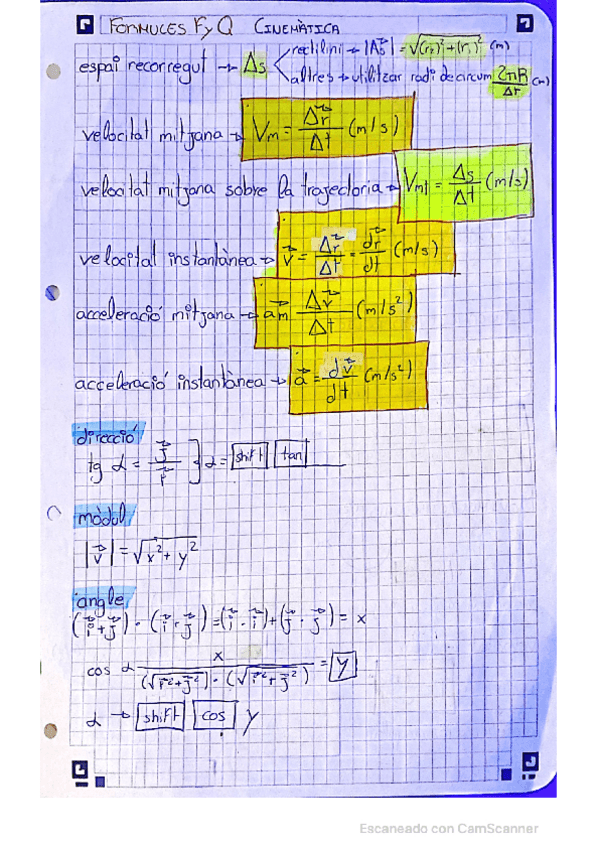 FORMULES F y Q CINEMÀTICA
espai recorregut → Δs
rectilini → |Δs| = √(r₂)²+(r₁)² (m)
altres → utilitzar radi de circum 2πR/Δr (m)
velocitat mitjana → Vm = Δr⃗/Δt (m/s)
velocitat mitjana sobre la trajectoria → Vmt = Δs/Δt (m/s)
velocitat instantània → v⃗ = Δr⃗/Δt = dr⃗/dt (m/s)
acceleració mitjana → a⃗m Δv⃗/Δt (m/s²)
acceleració instantània → a⃗ = dv⃗/dt (m/s²)
direcció
tg α = j⃗/i⃗ } α = shift tan
mòdul
|v⃗| = √x²+y²
angle
(i⃗+j⃗) · (i⃗·j⃗) = (i⃗·i⃗)+(j⃗·j⃗) = x
cos α x/(√i²+j²)·(√i²+j²) = y
α → shift cos y
Escaneado con CamScanner